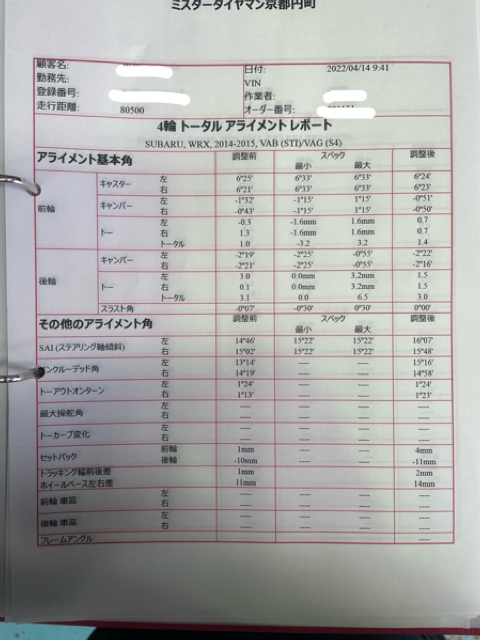 ミスタータイヤマン京都円町
顧客名: 日付: 2022/04/14 9:41
勤務先: VIN
登録番号: 作業者:
走行距離: 80500 オーダー番号:
4輪 トータル アライメント レポート
SUBARU, WRX, 2014-2015, VAB (STI)/VAG (S4)
アライメント基本角 調整前 スペック 調整後
最小 最大
前輪 キャスター 左 6°25' 6°33' 6°33' 6°24'
右 6°21' 6°33' 6°33' 6°23'
キャンバー 左 -1°32' -1°15' 1°15' -0°51'
右 -0°43' -1°15' 1°15' -0°50'
トー 左 -0.3 -1.6mm 1.6mm 0.7
右 1.3 -1.6mm 1.6mm 0.7
トータル 1.0 -3.2 3.2 1.4
後輪 キャンバー 左 -2°19' -2°25' -0°55' -2°22'
右 -2°21' -2°25' -0°55' -2°16'
トー 左 3.0 0.0mm 3.2mm 1.5
右 0.1 0.0mm 3.2mm 1.5
トータル 3.1 0.0 6.5 3.0
スラスト角 -0°07' -0°30' 0°30' 0°00'
その他のアライメント角 調整前 スペック 調整後
最小 最大
SAI (ステアリング軸傾斜) 左 14°46' 15°22' 15°22' 16°07'
右 15°02' 15°22' 15°22' 15°48'
ンクルーデッド角 左 13°14' ---- ---- 15°16'
右 14°19' ---- ---- 14°58'
トーアウトオンターン 左 1°24' ---- ---- 1°24'
右 1°13' ---- ---- 1°23'
最大操舵角 左 ---- ---- ---- ----
右 ---- ---- ---- ----
トーカーブ変化 左 ---- ---- ---- ----
右 ---- ---- ---- ----
セットバック 前輪 1mm ---- ---- 4mm
後輪 -10mm ---- ---- -11mm
トラッキング幅前後差 1mm ---- ---- 2mm
ホイールベース左右差 11mm ---- ---- 14mm
前輪 車高 左 ---- ---- ---- ----
右 ---- ---- ---- ----
後輪 車高 左 ---- ---- ---- ----
右 ---- ---- ---- ----
フレームアングル ---- ----